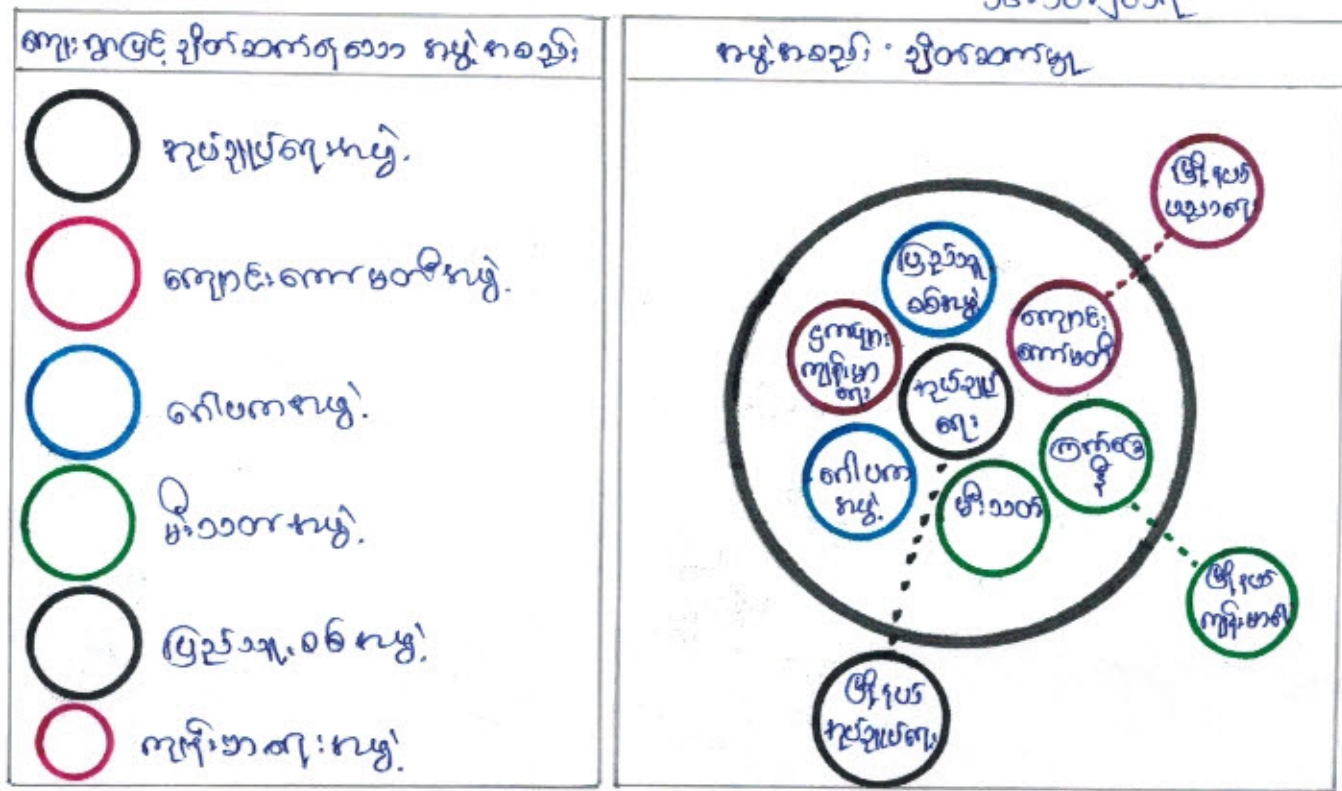 ကျေးရွာဖြင့် ချိတ်ဆက်ရသော အဖွဲ့အစည်း
အုပ်ချုပ်ရေးအဖွဲ့
ကျောင်းကော်မတီအဖွဲ့
ဂေါပကအဖွဲ့
မီးသတ်အဖွဲ့
ပြည်သူ့စစ်အဖွဲ့
ကျန်းမာရေးအဖွဲ့
အဖွဲ့အစည်း ချိတ်ဆက်မှု
မြို့နယ်
ပညာရေး
ပြည်သူ့
စစ်အဖွဲ့
ကျောင်း
ကော်မတီ
ကျန်းမာ
ရေး
အုပ်ချုပ်
ရေး
ကြက်ခြေ
နီ
ဂေါပက
အဖွဲ့
မီးသတ်
မြို့နယ်
ကျန်းမာရေး
မြို့နယ်
အုပ်ချုပ်ရေး